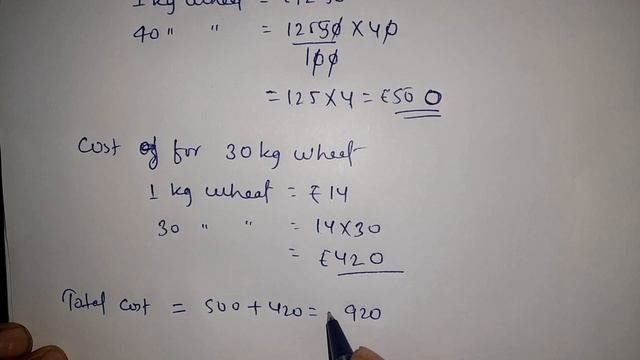 1 kg wheat = ₹12.50
40 " " = 1250 × 40
100
= 125 × 4 = ₹500
Cost of for 30 kg wheat
1 kg wheat = ₹14
30 " " = 14 × 30
= ₹420
Total cost = 500 + 420 = 920